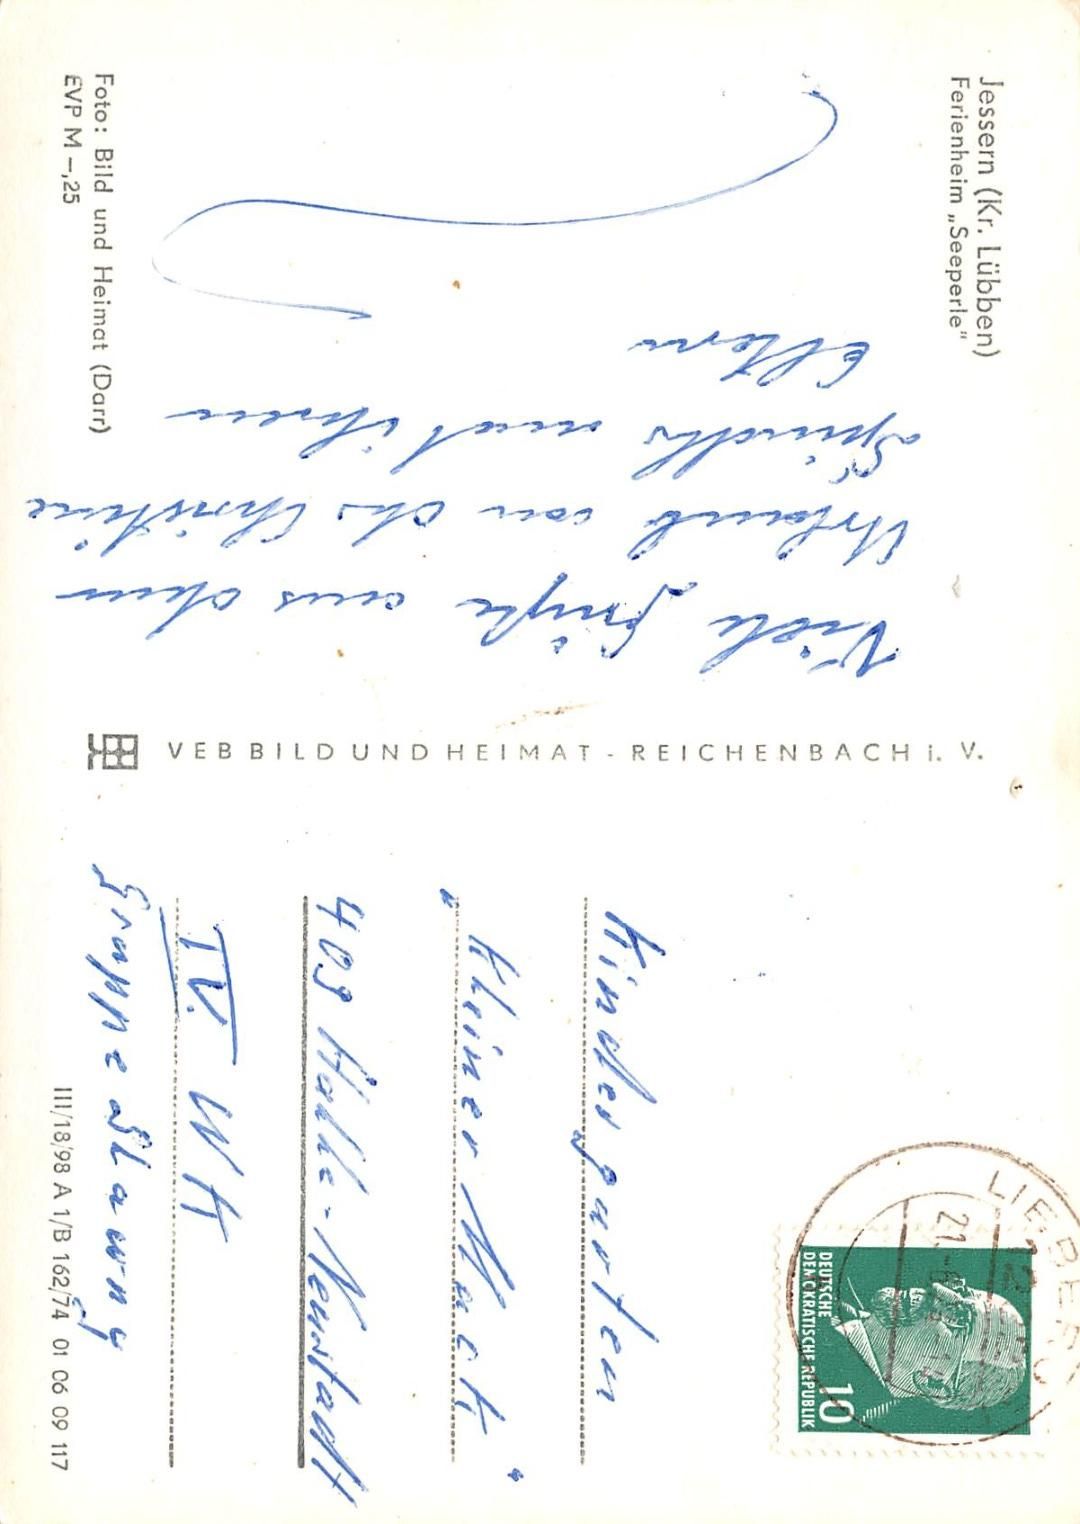 Jessern (Kr. Lübben)
Ferienheim „Seeperle"
Viele Grüße aus dem
Urlaub von der Christine
und ihren
Eltern
Foto: Bild und Heimat (Darr)
EVP M –,25
VEB BILD UND HEIMAT - REICHENBACH i. V.
Kindergarten
"Kleiner Muck"
409 Halle-Neustadt
IV. WK
Gruppe
III/18/98 A 1/B 162/74 01 06 09 117
DEUTSCHE
DEMOKRATISCHE REPUBLIK
10